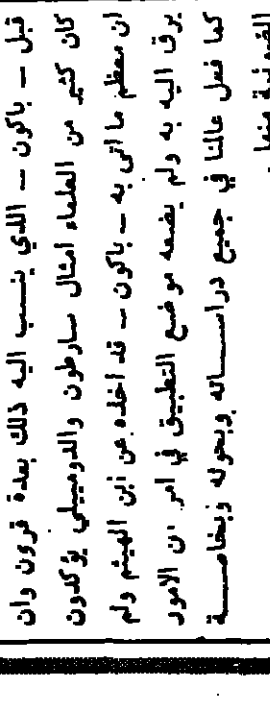 قبل – باكون – اللدي ينسب اليه ذلك بعدة قرون وان
كان كثير من العلماء امثال سارطون والدوميلي يؤكدون
ان معظم ما اتى به – باكون – قد اخذه عن ابن الهيثم ولم
يرق اليه به ولم يضعه موضع التطبيق في امر من الامور
كما فعل عالمنا في جميع دراساته وبحوثه وبخاصة
الضوئية منها .